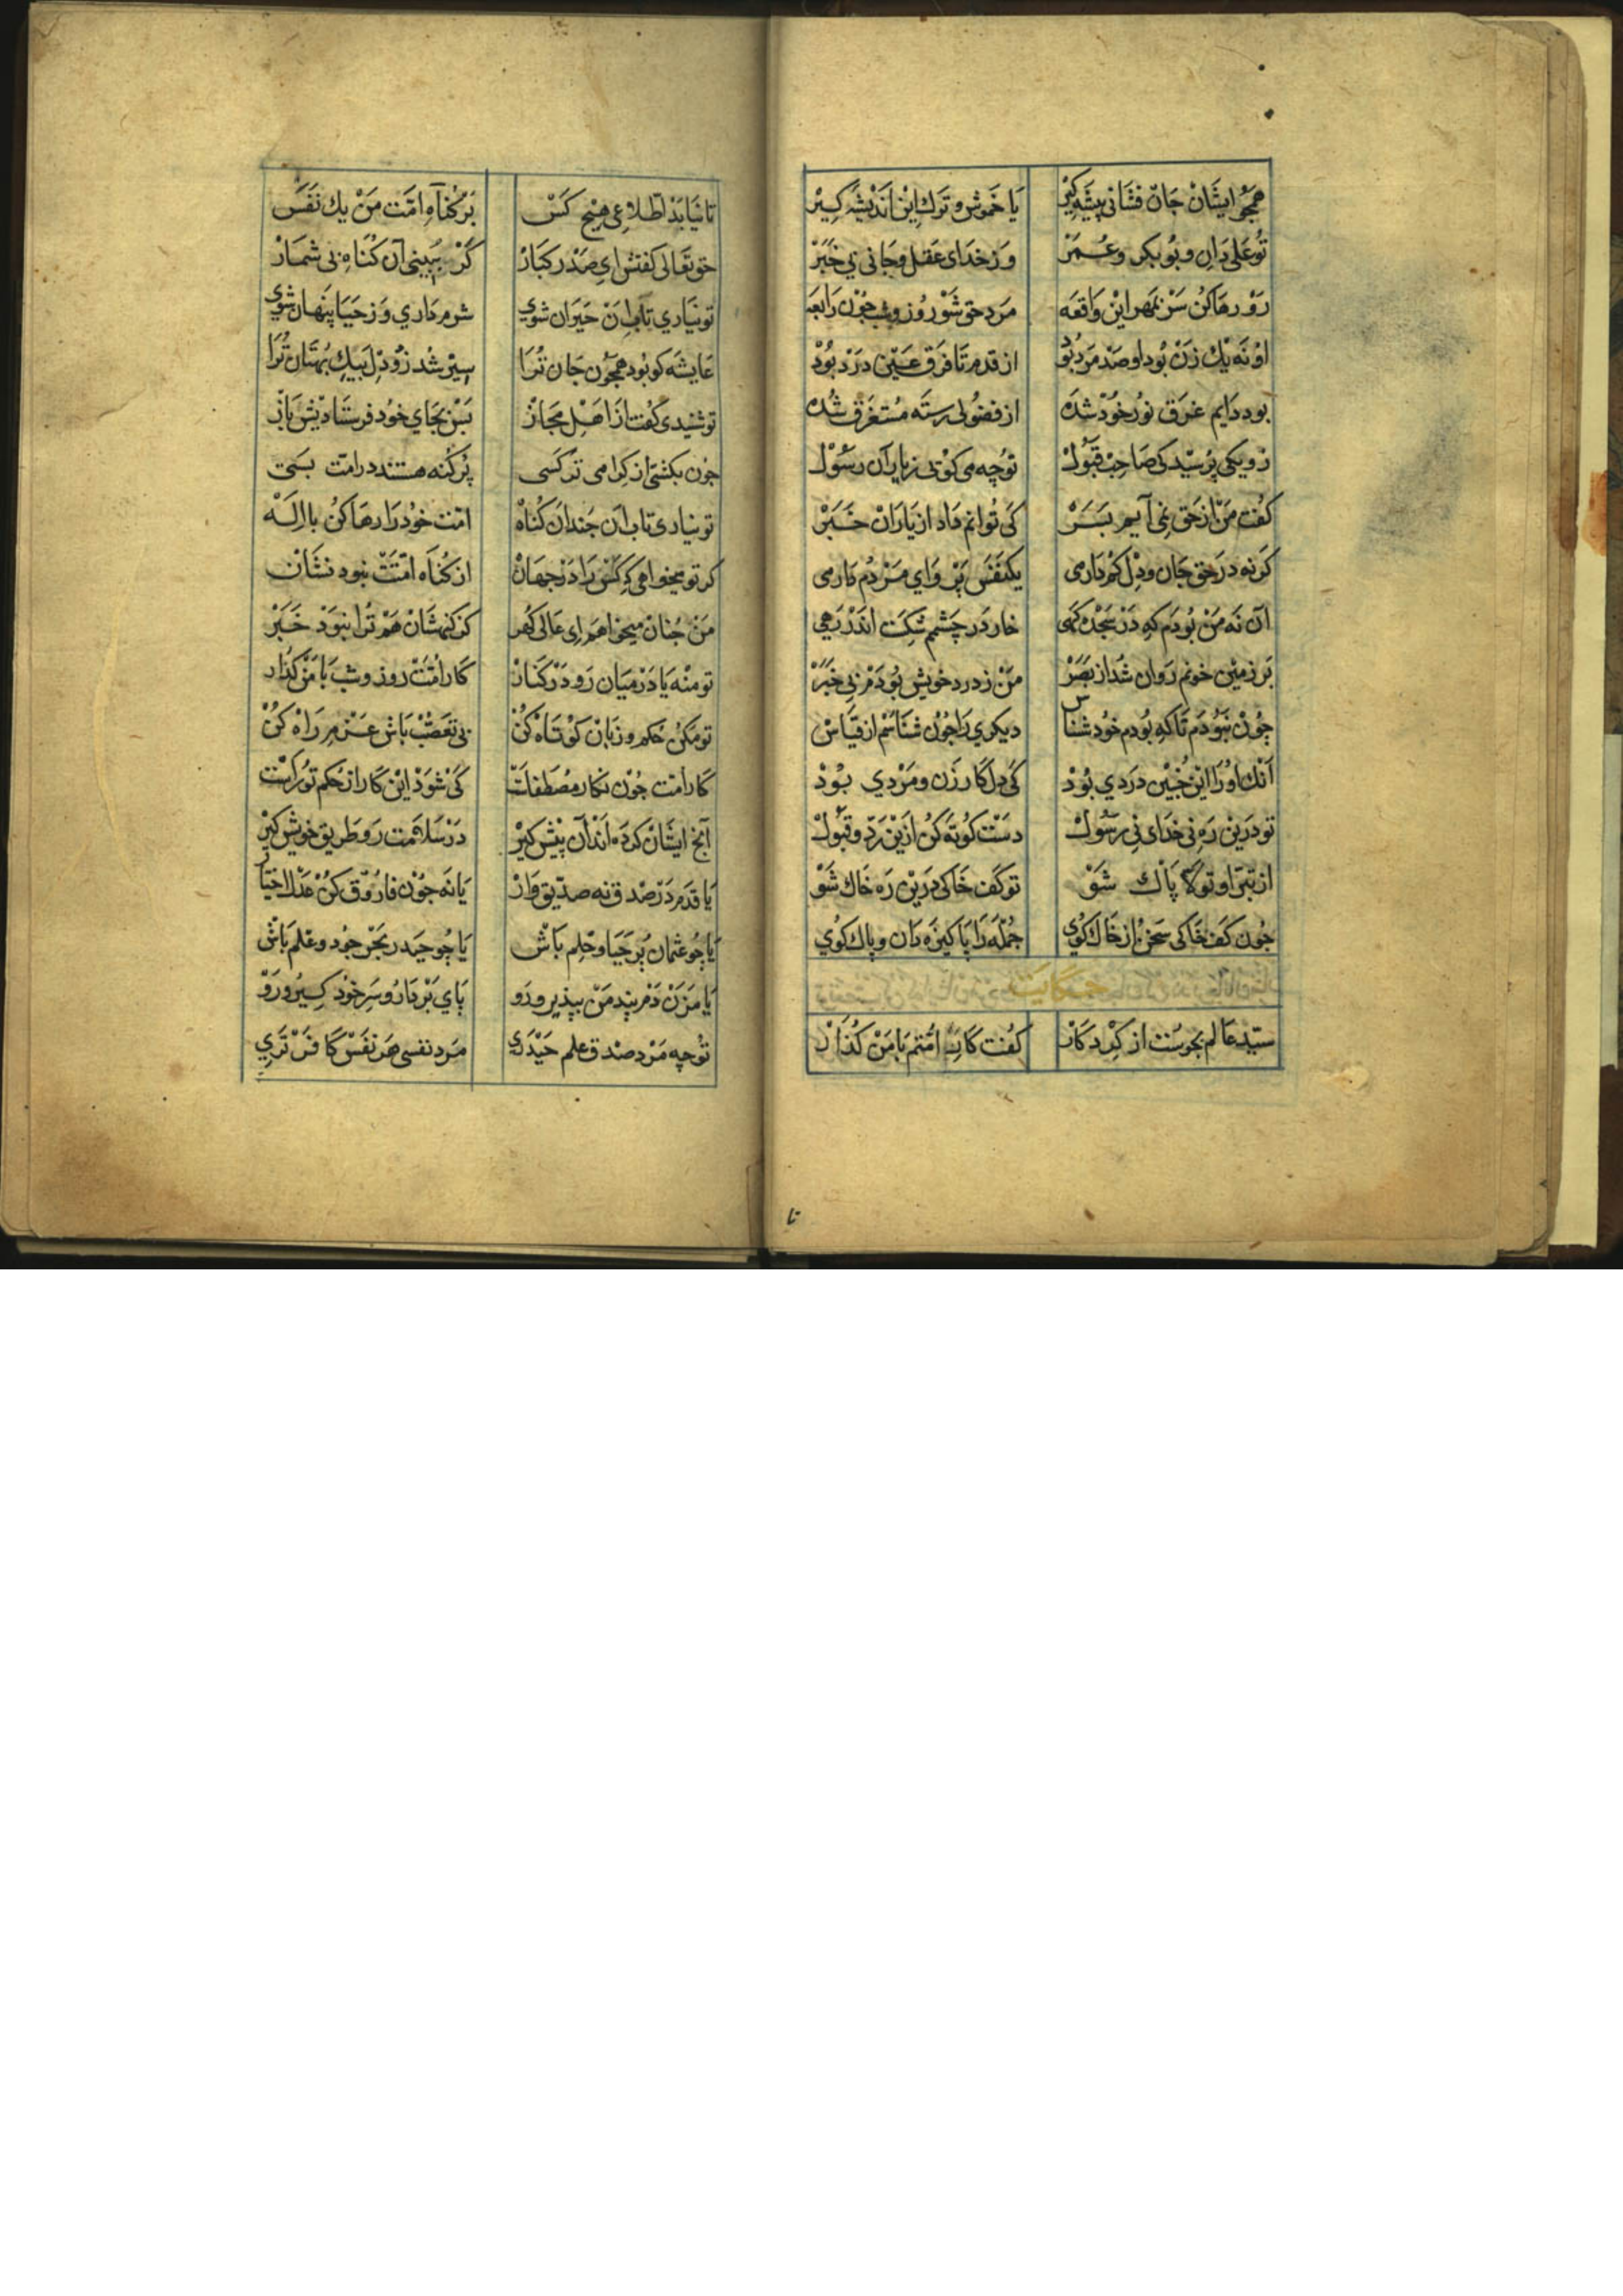 همچو ایشان جان فشانی پیشه گیر یا خموش و ترک این اندیشه گیر
تو علی دان و بوبکر و عمر وز خدای عقل و جانی بی خبر
رو رها کن سر بمهر این واقعه مرد حق شو روز و شب چون رابعه
او نه یک زن بود او صد مرد بود از قدم تا فرق عین درد بود
بود دایم غرق نور خود شده از فضولی رسته مستغرق شده
زو یکی پرسید کی صاحب قبول تو چه می کوئی ز یاران رسول
کفت من از حق نمی آیم بسر کی توانم داد از یاران خبر
کرنه در حق جان و دل کم دارمی یکنفس پروای مردم دارمی
آن نه من بودم که در سجده کهی خار در چشمم شکست اندر رهی
بر زمین خونم روان شد از بصر من ز درد خویش بودم بی خبر
چون نبودم تا که بودم خود شناس دیکری را چون شناسم از قیاس
آنک او را این چنین دردی بود کی دل کار زن و مردی بود
تو درین ره نی خدای نی رسول دست کوته کن ازین رد و قبول
از تبرا و تولا پاک شو تو کف خاکی درین ره خاک شو
چون کف خاکی سخن از خاک کوی جمله را پاکیزه دان و پاک کوی
حکایت
سید عالم بخوست از کردکار کفت کار امتم با من کذار
تا
تا نیابد اطلاعی هیچ کس بر کناه امت من یک نفس
حق تعالی کفتش ای صدر کبار کر ببینی آن کناه بی شمار
تو نیاری تاب ان حیران شوی شرم داری وز حیا پنهان شوی
عایشه کو بود همچون جان ترا سیر شد زو دل بیک بهتان ترا
تو شنیدی کفت از اهل مجاز بس بجای خود فرستادیش باز
چون بکشتی از کرامی تر کسی پرکنه هستند در امت بسی
تو نیاری تاب ان چندان کناه امت خود را رها کن با اله
کر تو میخواهی که کس را در جهان از کناه امتت نبود نشان
من چنان میخواهم ای عالی کهر کز کنهشان هم ترا نبود خبر
تو منه پا در میان رو در کنار کار امت روز و شب با من کذار
کار امت چون نه کار مصطفاست کی شود این کار از حکم تو راست
تو مکن حکم و زبان کوتاه کن بی تعصب باش عزم راه کن
آنچ ایشان کرده اند آن پیش کیر در سلامت رو طریق خویش کیر
یا قدم در صدق نه صدیق وار یا نه چون فاروق کن عدل اختیار
یا چو عثمان پر حیا و حلم باش یا چو حیدر بحر جود و علم باش
یا مزن دم پند من بپذیر و رو پای بردار و سر خود کیر و رو
تو چه مرد صدق و علم حیدری مرد نفسی هر نفس کافرتری